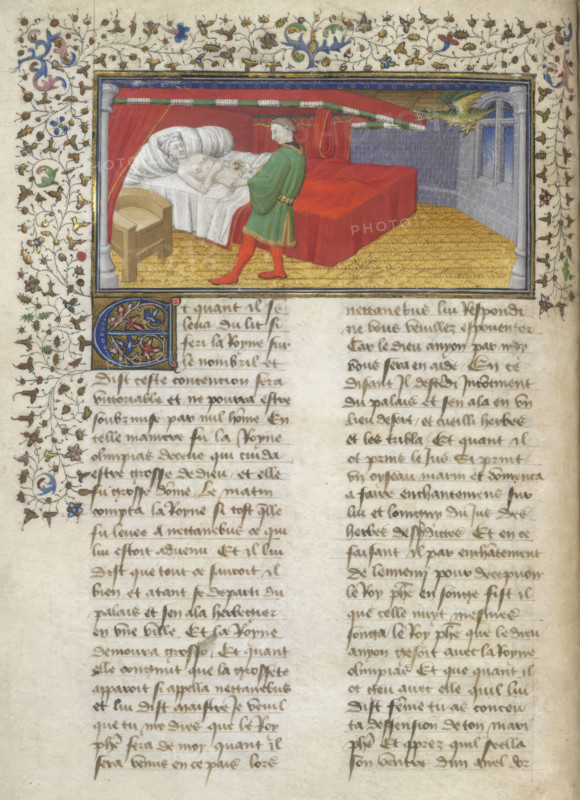 Et quant il se
leva du lit si
feri la Royne sur
le nombril et
dist ceste concepcion sera
victoriable et ne pourra estre
soubzmise par nul hōme En
telle maniere fu la Royne
olimpias deceue qui cuida
estre grosse de dieu et elle
fu grosse dōme Le matin
compta la Royne si tost q̄lle
fu levee a nectanebus ce qui
lui estoit advenu Et il lui
dist que tout ce savoit il
bien et atant se departi du
palais et sen ala herbergier
en vne ville Et la Royne
demoura grosse Et quant
elle congnut que la grossete
apparoit si appella nectanebus
et lui dist maistre Je veuil
que tu me dies que le Roy
phē fera de moy quant il
sera venus en ce pais lors
nectanebus lui Respondi
ne vous vueillez espouenter
Car le dieu amon par moy
vous sera en aide En ce
disant Il
du palais et sen ala en vn
lieu desert et cueilli herbes
et les tribla Et quant il
ot prins le Jus Si print
vn oyseau marin et cōmenca
a faire enchantemens sur
lui et
herbes Et en ce
faisant il par enchātement
de lennemi pour decepuoir
le Roy phē en songe fist il
que celle nuyt mesmes
songa le Roy phē que le dieu
amon gesoit avec la Royne
olimpias Et que quant il
ot geu avec elle quil lui
dist feme tu as conceu
ta deffension de ton mari
phē Et aprez quil seella
son ventre dun anel dor